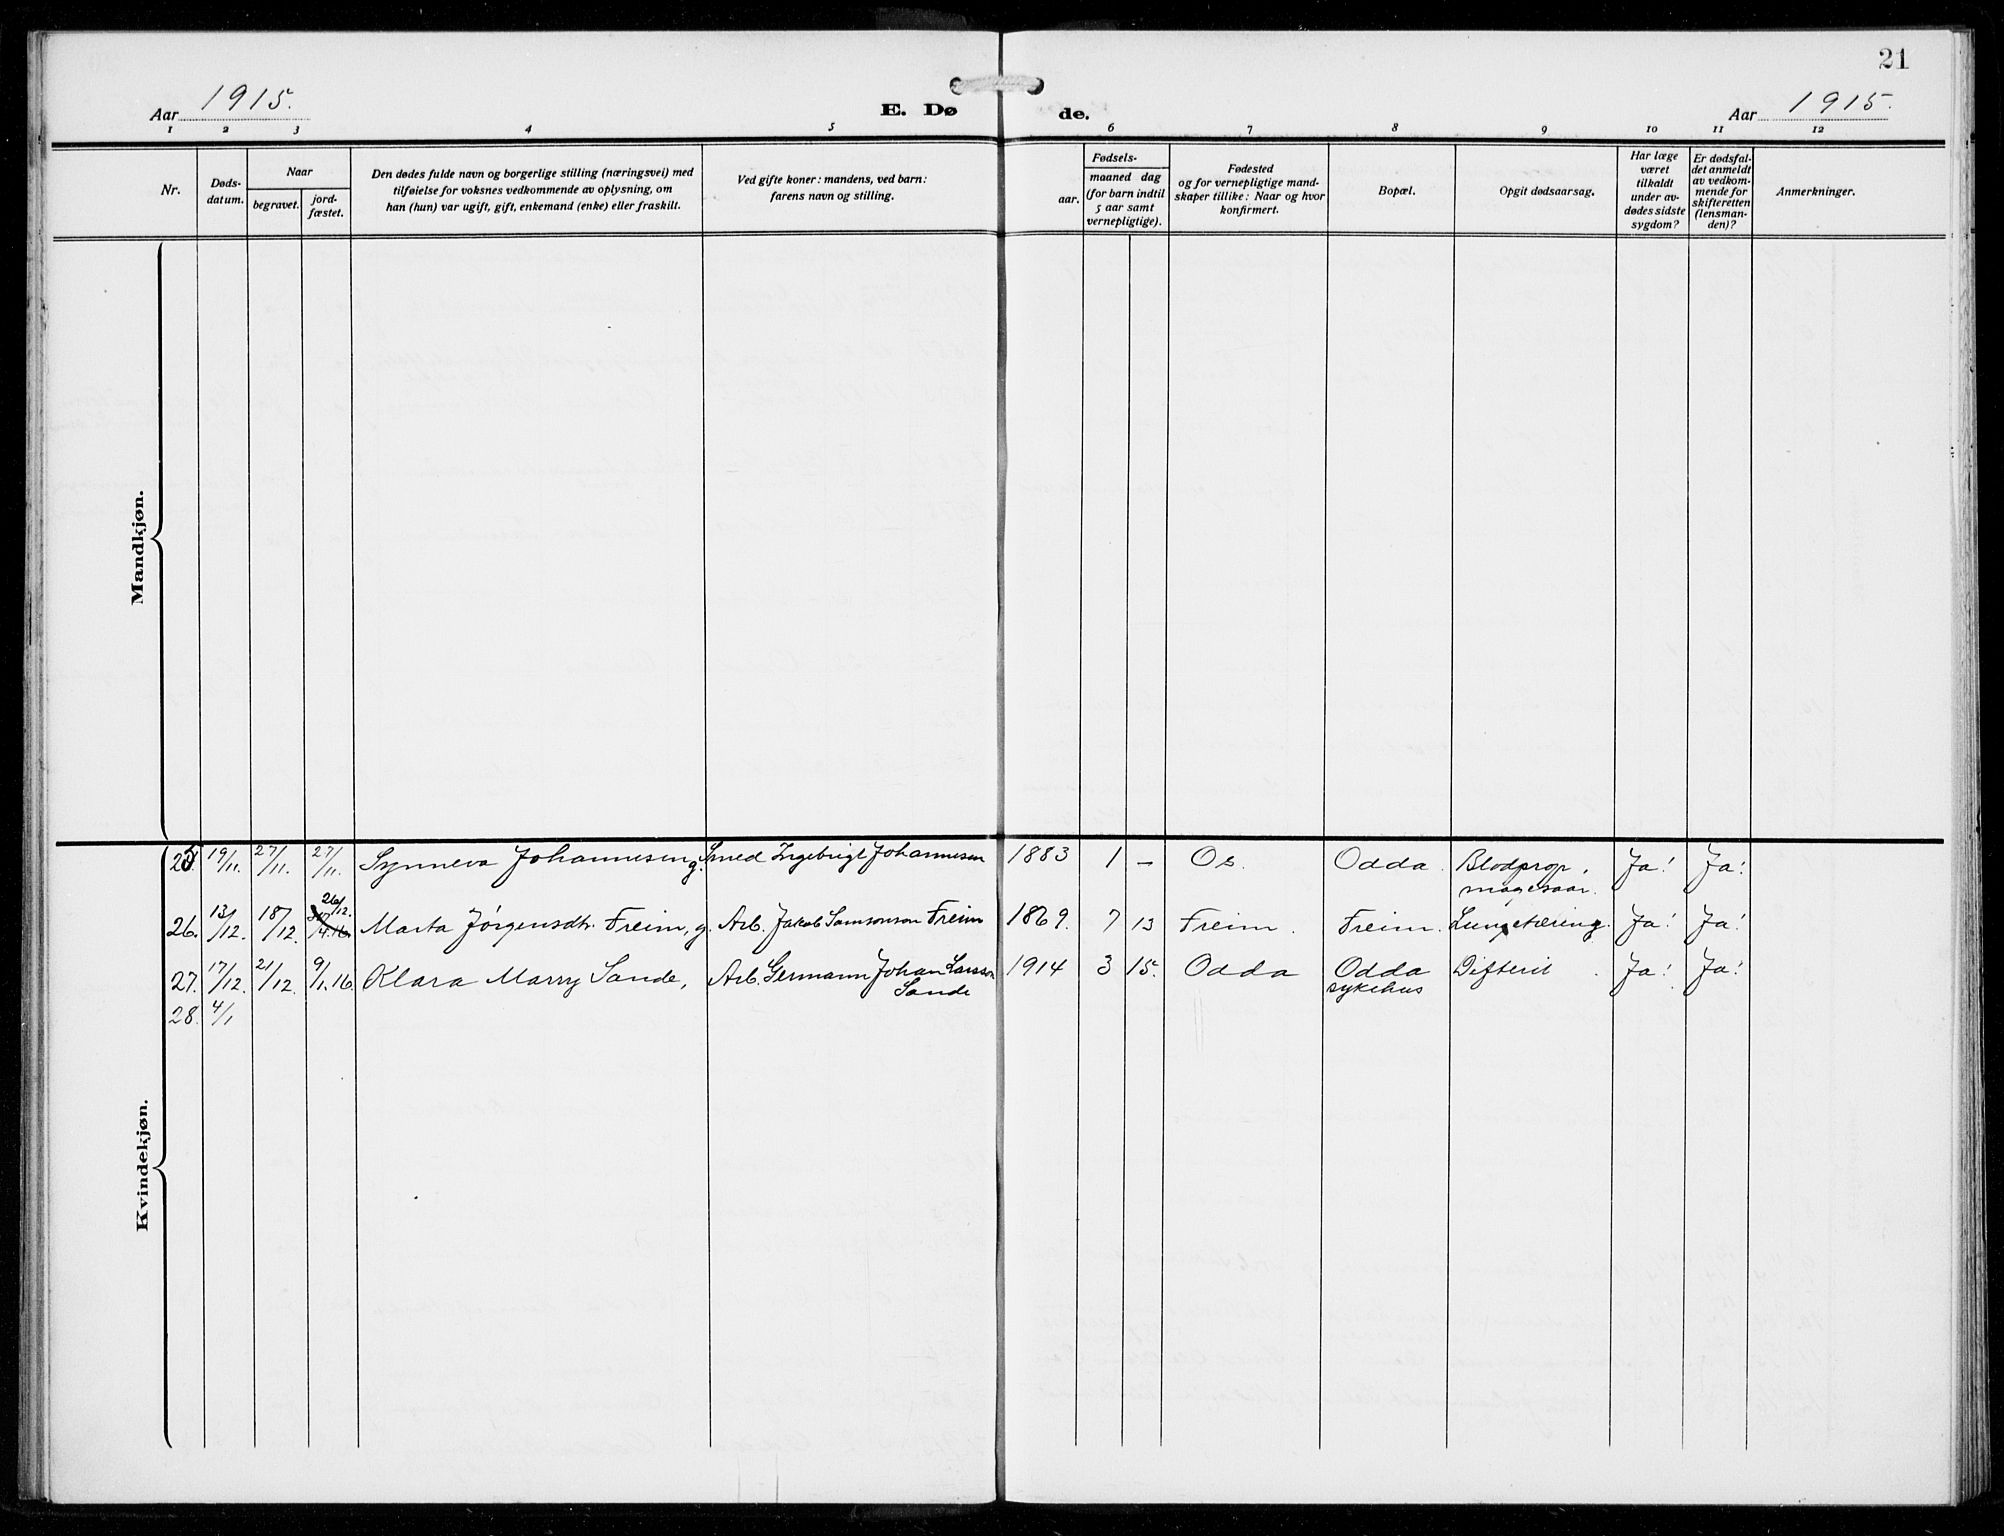 21
Aar 1915.
E. Dø de.
Aar 1915.
1 2 3 4 5 6 7 8 9 10 11 12
Nr.
Døds-
datum.
Naar
begravet.
jord-
fæstet.
Den dødes fulde navn og borgerlige stilling (næringsvei) med
tilføielse for voksnes vedkommende av oplysning, om
han (hun) var ugift, gift, enkemand (enke) eller fraskilt.
Ved gifte koner: mandens, ved barn:
farens navn og stilling.
Fødsels-
aar.
maaned dag
(for barn indtil
5 aar samt
vernepligtige).
Fødested
og for vernepligtige mand-
skaper tillike: Naar og hvor
konfirmert.
Bopæl.
Opgit dødsaarsag.
Har læge
været
tilkaldt
under av-
dødes sidste
sygdom?
Er dødsfal-
det anmeldt
av vedkom-
mende for
skifteretten
(lensman-
den)?
Anmerkninger.
Mandkjøn.
Kvindekjøn.
25. 19/11. 27/11. 27/11. Synneva Johannesen g. Smed Ingebrigt Johannesen 1883 1 — Os. Odda. Blodprop, Ja! Ja!
magesaar.
26/12.
26. 13/12. 18/12. Marta Jørgensdtr. Freim, g. Arb. Jakob Samsonson Freim 1869. 7 13 Freim. Freim. Lungetæring. Ja! Ja!
27. 17/12. 21/12. 9/1.16. Klara Marry Sande, Arb. Germann Johan Larsson 1914 3 15. Odda Odda Difterit. Ja! Ja!
Sande sykehus
28. 4/1